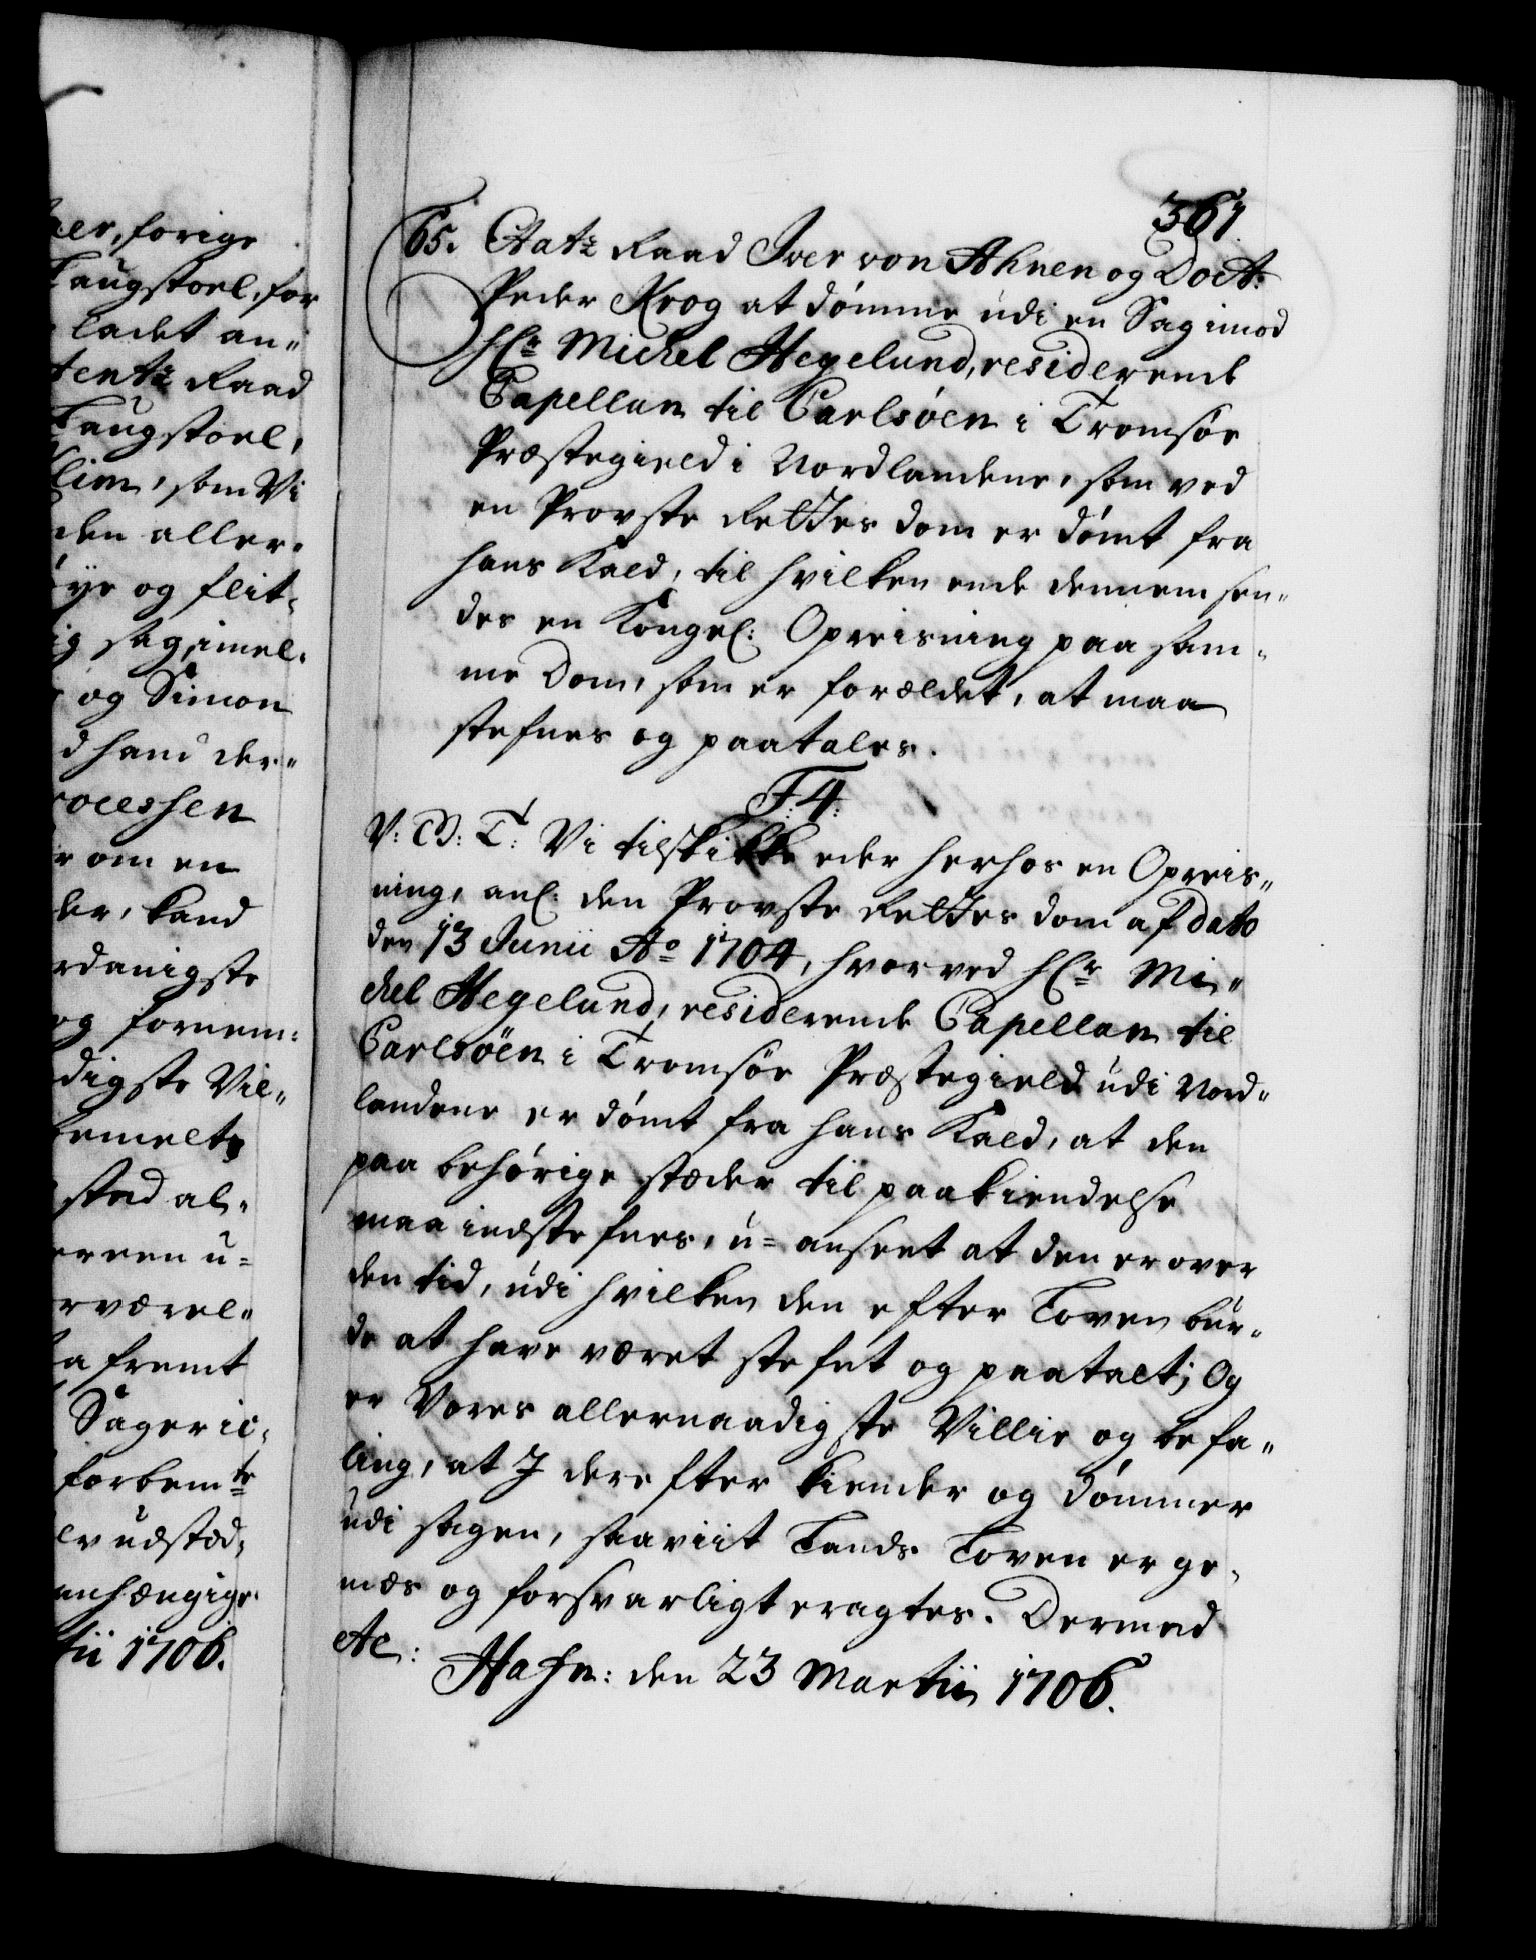 ær, forige
Laugstoel, for
ladet an„
tentz Raad
Laugstoel,
som Vi
den aller„
og flit„
sag, imel„
og Simon
d hand der„
rocessen
om en
der, kand
rdanigste
og fornem„
digste Vil„
bemelte
sted al„
u„
rværel„
a fremt
Sager ic„
forbemte
udstæd„
anhængige
tii 1706.
361
65. Etatz Raad Iver von Ahnen og Doct:
Peder Krog at dömme udi en Sag imod
Hr Michel Hegelund, residerende
Capellan til Carlsöen i Tromsöe
Præstegield i Nordlandene, som ved
en Provste Rettes dom er dömt fra
hans Kald, til hvilken ende dennem sen„
des en Kongel: Opreisning paa sam„
me Dom, som er forældet, at maa
stefnes og paatales.
F: 4:
V: G: T: Vi tilskikke eder herhos en Opreis„
ning, anl: den Provste Rettes dom af dato
den 13 Junii Ao 1704, hvorved Hr Mi„
chel Hegelund, residerende Capellan til
Carlsöen i Tromsöe Præstegield udi Nord„
landene er dömt fra hans Kald, at den
paa behörige stæder til paakiendelse
maa indstefnes, u=anseet at den er over
den tid, udi hvilken den efter Loven bur„
de at have været stefnt og paatalt; Og
er Vores allernaadigste Villie og befa„
ling, at I derefter kiender og dömmer
udi sagen, saaviit Lands Loven er ge„
mæs og forsvarligt eragtes. Dermed
etc:
Hafn: den 23 Martii 1706.